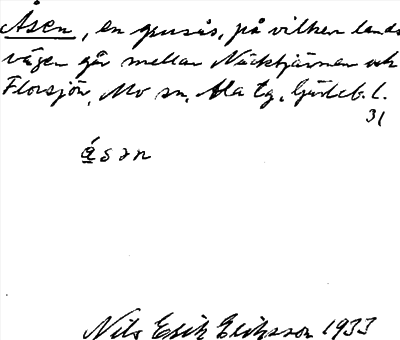 Åsen, en grusås, på vilken lands
vägen går mellan Näcktjärnen och
Florsjön, Mo sn, Ala tg, Gävleb. l.
31
åsən
Nils Erik Eriksson 1933